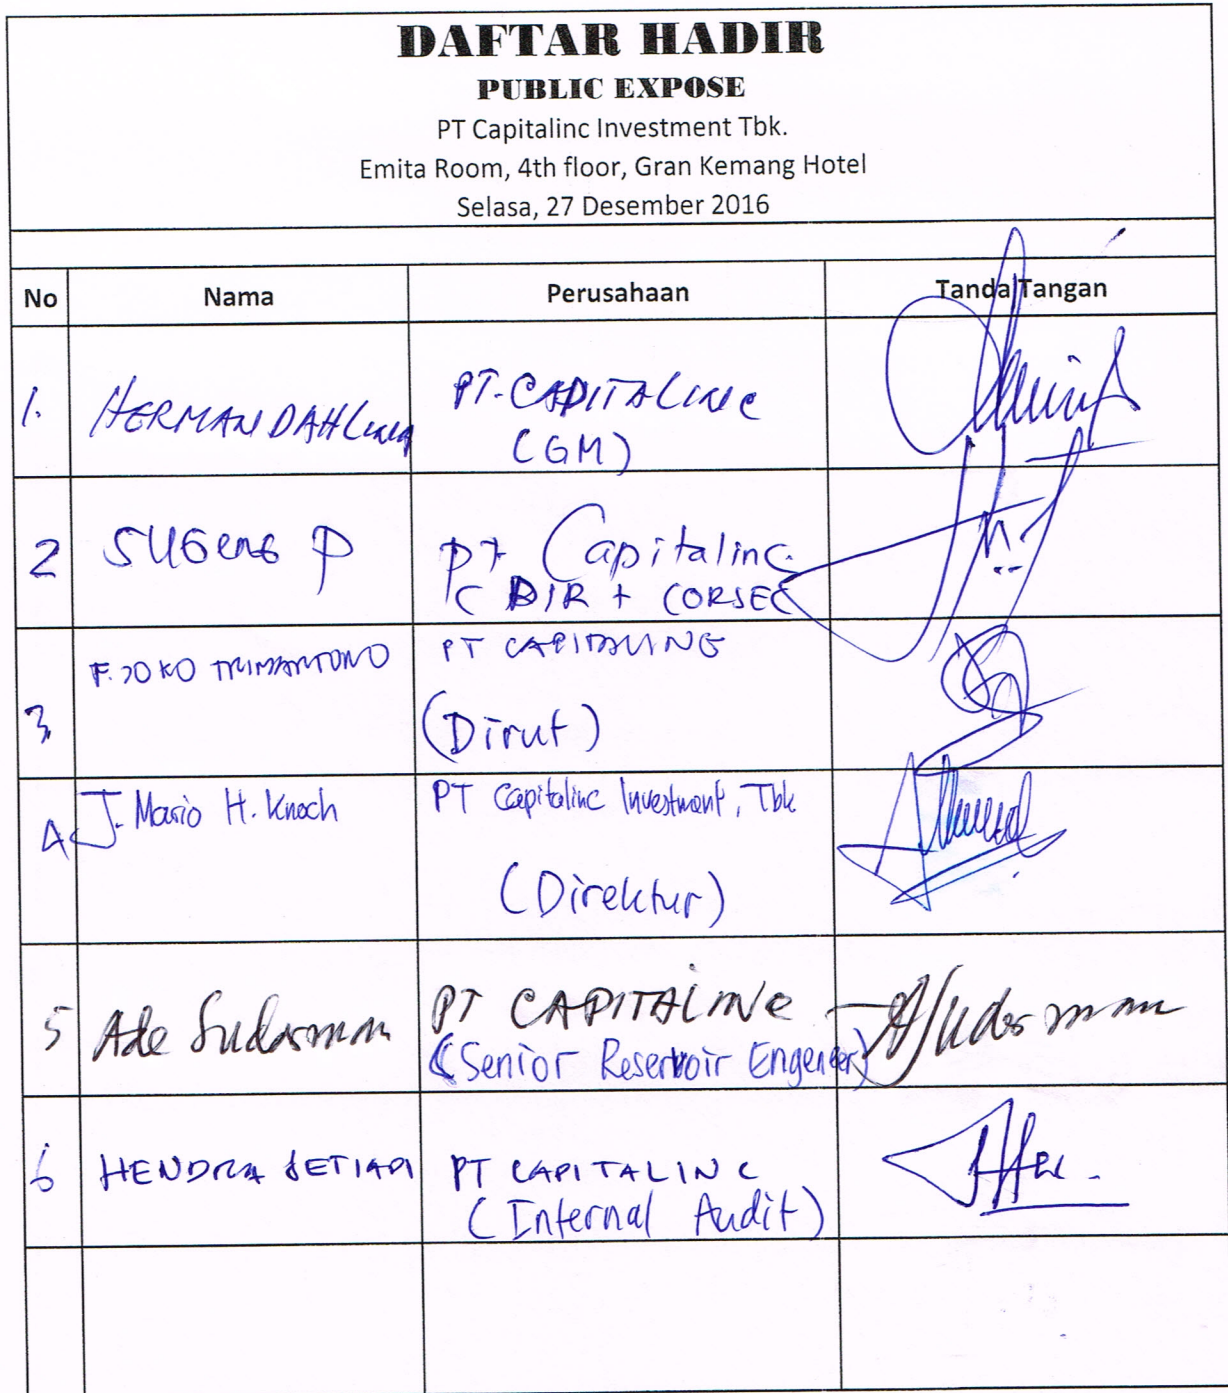 DAFTAR HADIR
PUBLIC EXPOSE
PT Capitalinc Investment Tbk.
Emita Room, 4th floor, Gran Kemang Hotel
Selasa, 27 Desember 2016
No Nama Perusahaan Tanda Tangan
1. HERMAN DAHLING PT. CAPITALINC
(GM)
2 SUGENG P PT Capitalinc
( DIR + CORSEC
3 F. JOKO TRIMARTONO PT CAPITALINC
(Dirut)
4 J. Mario H. Knoch PT Capitalinc Investment, Tbk
(Direktur)
5 Ade Sudarman PT CAPITALINC ASudarman
(Senior Reservoir Engeneer)
6 HENDRA SETIADI PT CAPITALINC
(Internal Audit)